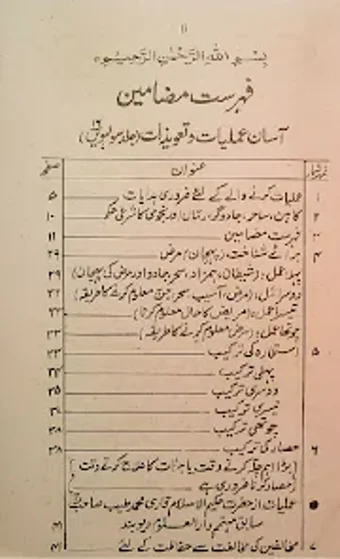 ۱۱
بِسْمِ اللّٰهِ الرَّحْمٰنِ الرَّحِيْمِ
فہرست مضامین
آسان عملیات و تعویذات (جلد سولہویں ۱۶)
نمبر شمار عنوان صفحہ
۱ عملیات کرنے والے کے لئے ضروری ہدایات ۵
۲ کاہن، ساحر، جادوگر، رمال اور نجومی کا شرعی حکم ۱۰
۳ فہرست مضامین ۱۱
۴ برائے شناخت، (پہچان) مرض ۲۹
پہلا عمل: (شیطان، ہمزاد، سحر جادو اور مرض کی پہچان) ۲۹
دوسرا عمل: (مرض، آسیب، سحر، جن معلوم کرنے کا طریقہ) ۳۲
تیسرا عمل: (مریض کا حال معلوم کرنا) ۳۳
چوتھا عمل: (مرض معلوم کرنے کا طریقہ) ۳۳
۵ استخارہ کی ترکیب ۳۳
پہلی ترکیب ۳۴
دوسری ترکیب ۳۵
تیسری ترکیب
چوتھی ترکیب ۳۸
۶ حصار کی ترکیب ۳۸
بڑا اہم چلہ کرتے وقت یا جنات کا علاج کرتے وقت
حصار کرنا ضروری ہے
● عملیات از حضرت حکیم الاسلام قاری محمد طیب صاحب
سابق مہتمم دارالعلوم دیوبند ۴۱
۷ مخالفین کی مخالفت سے حفاظت کے لئے ۴۱